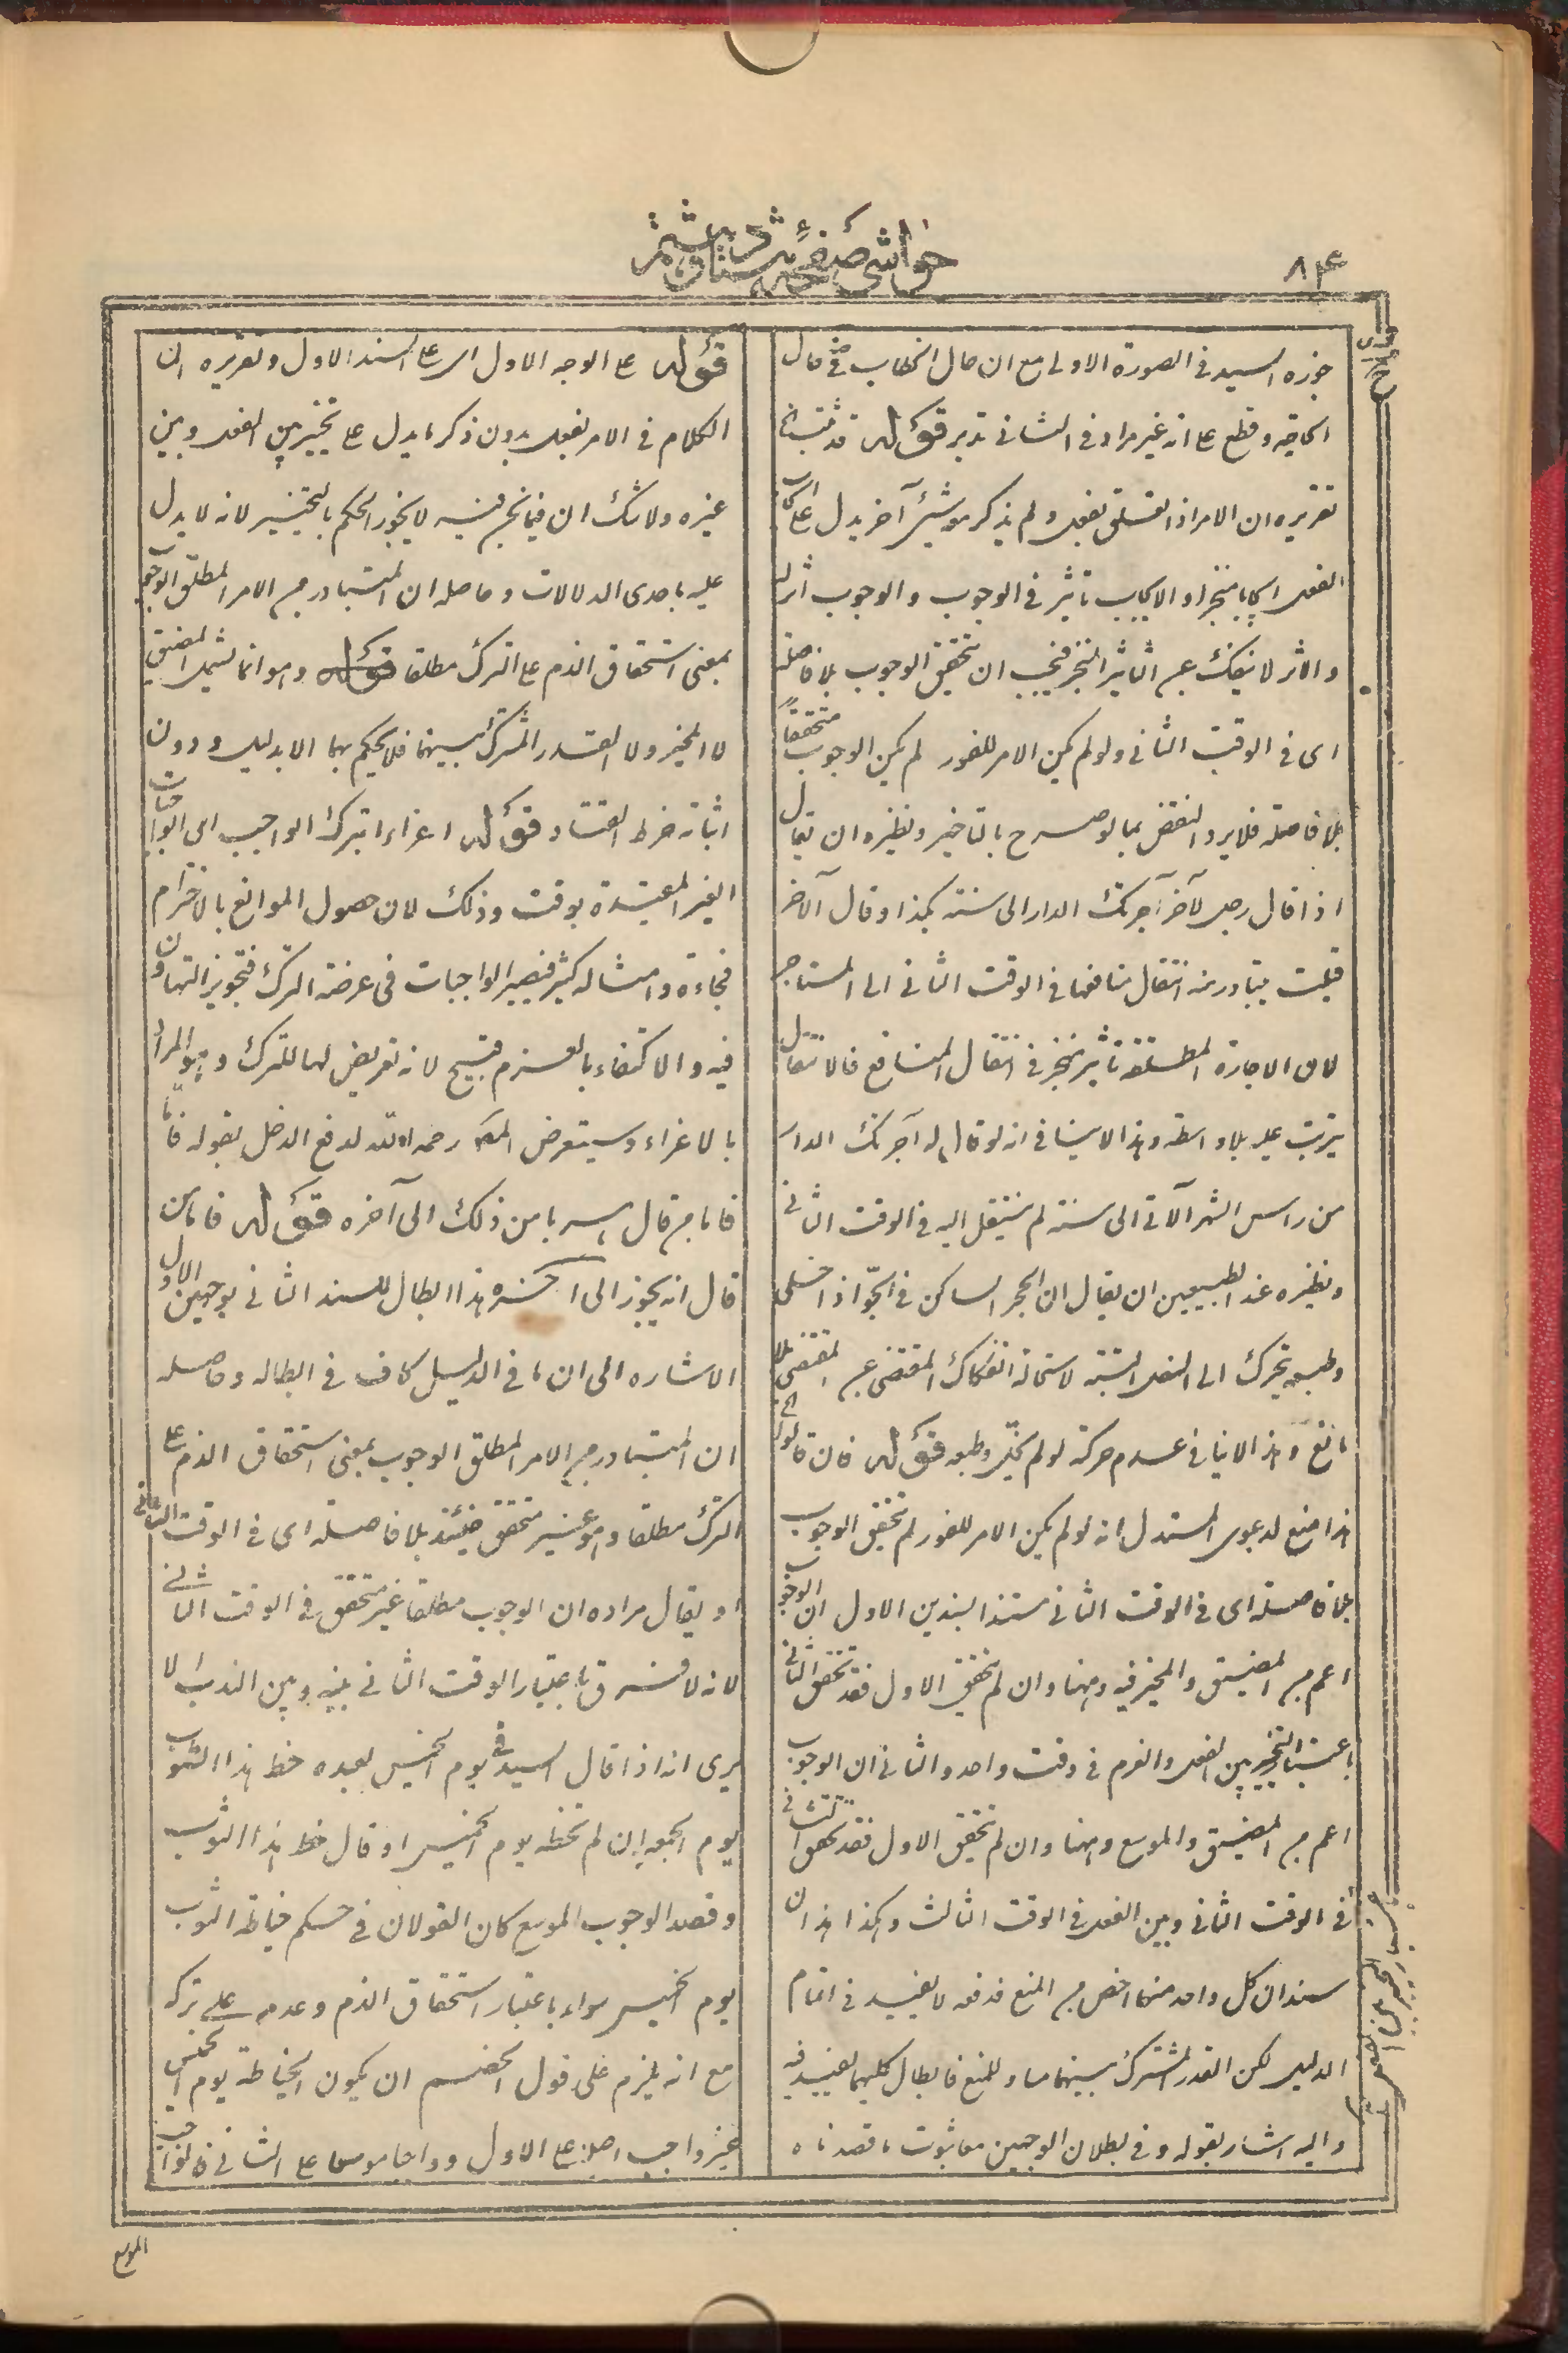 ٨٤
حواشی صفحه
جوزه السيد فی الصورة الاولی مع ان حال الخطاب فی حال
الحاجة وقطع علی انه غیر مراد فی الثانی تدبر قوله قد ثبت
تقریره ان الامر اذا تعلق بفعل ولم یذکر هو شیئ آخر یدل علی ایجاب
الفعل ایجابا منجزا والایجاب تاثیر فی الوجوب والوجوب اثر له
والاثر لا ینفک عن التاثیر المنجز فیجب ان تحقق الوجوب بلا فاصلة
ای فی الوقت الثانی ولو لم یکن الامر للفور لم یکن الوجوب متحققا
بلا فاصلة فلا یرد النقض بما لو صرح بالتاخیر ونظیره ان یقال
اذا قال رجل لآخر آجرتک الدار الی سنة بکذا وقال الآخر
قبلت یتبادر منه انتقال منافعها فی الوقت الثانی الی المستاجر
لان الاجارة المطلقة تاثیر منجز فی انتقال المنافع فالانتقال
یترتب علیه بلا واسطة وهذا لا ینافی انه لو قال له آجرتک الدار
من راس الشهر الآتی الی سنة لم ینتقل الیه فی الوقت الثانی
ونظیره عند الطبیعیین ان یقال ان الحجر الساکن فی الجو اذا خلی
وطبعه یتحرک الی السفل البتة لاستحالة انفکاک المقتضی عن المقتضی بلا
مانع وهذا لا ینافی عدم حرکة لو لم یخل وطبعه قوله فان قالوا الخ
هذا منع لدعوی المستدل انه لو لم یکن الامر للفور لم تحقق الوجوب
بلا فاصلة ای فی الوقت الثانی مستندا بسندین الاول ان الوجوب
اعم من المضیق والمخیر فیه وههنا وان لم تحقق الاول فقد تحقق الثانی
باعتبار التخییر بین الفعل والعزم فی وقت واحد والثانی ان الوجوب
اعم من المضیق والموسع وههنا وان لم تحقق الاول فقد تحقق الثانی
فی الوقت الثانی وبین الفعل فی الوقت الثالث وهکذا هذان
سندان کل واحد منهما اخص من المنع فدفعه لا یفید فی اتمام
الدلیل لکن القدر المشترک بینهما مساو للمنع فابطال کلیهما یفید فیه
والیه اشار بقوله وفی بطلان الوجهین معا ثبوت ما قصدناه
قوله علی الوجه الاول ای علی السند الاول وتقریره ان
الکلام فی الامر بفعل بدون ذکر ما یدل علی تخییر بین الفعل وبین
غیره ولا شک ان فیما نحن فیه لا یجوز الحکم بالتخییر لانه لا یدل
علیه باحدی الدلالات وحاصله ان المتبادر من الامر المطلق الوجوب
بمعنی استحقاق الذم علی الترک مطلقا وهو انما یشمل المضیق
لا المخیر ولا القدر المشترک بینهما فلا یحکم بها الا بدلیل ودون
اثباته خرط القتاد قوله اغراء بترک الواجب ای الواجبات
الغیر المقیدة بوقت وذلک لان حصول الموانع بالاخترام
فجاءة وامثاله کثیر فیصیر الواجبات فی عرضة الترک فتجویز التهاون
فیه والاکتفاء بالعزم قبیح لانه تعریض لها للترک وهو المراد
بالاغراء وسیتعرض المص رحمه الله لدفع الدخل بقوله فاما
فاما من قال لیس یا من ذلک الی آخره قوله فاما من
قال انه یجوز الی آخره هذا ابطال للسند الثانی بوجهین الاول
الاشاره الی ان ما فی الدلیل کاف فی ابطاله وحاصله
ان المتبادر من الامر المطلق الوجوب بمعنی استحقاق الذم علی
الترک مطلقا وهو غیر متحقق حینئذ بلا فاصلة ای فی الوقت الثانی
او یقال مراده ان الوجوب مطلقا غیر متحقق فی الوقت الثانی
لانه لا فرق باعتبار الوقت الثانی بینه وبین الندب الا
یری انه اذا قال السید فی یوم الخمیس لعبده خط هذا الثوب
یوم الجمعه ان لم تخطه یوم الخمیس او قال خط هذا الثوب
وقصد الوجوب الموسع کان القولان فی حکم خیاطة الثوب
یوم الخمیس سواء باعتبار استحقاق الذم وعدمه علی ترکه
مع انه یلزم علی قول الخصم ان یکون الخیاطة یوم الخمیس
غیر واجب اصلا علی الاول وواجبا موسعا علی الثانی فالواجب
الموسع